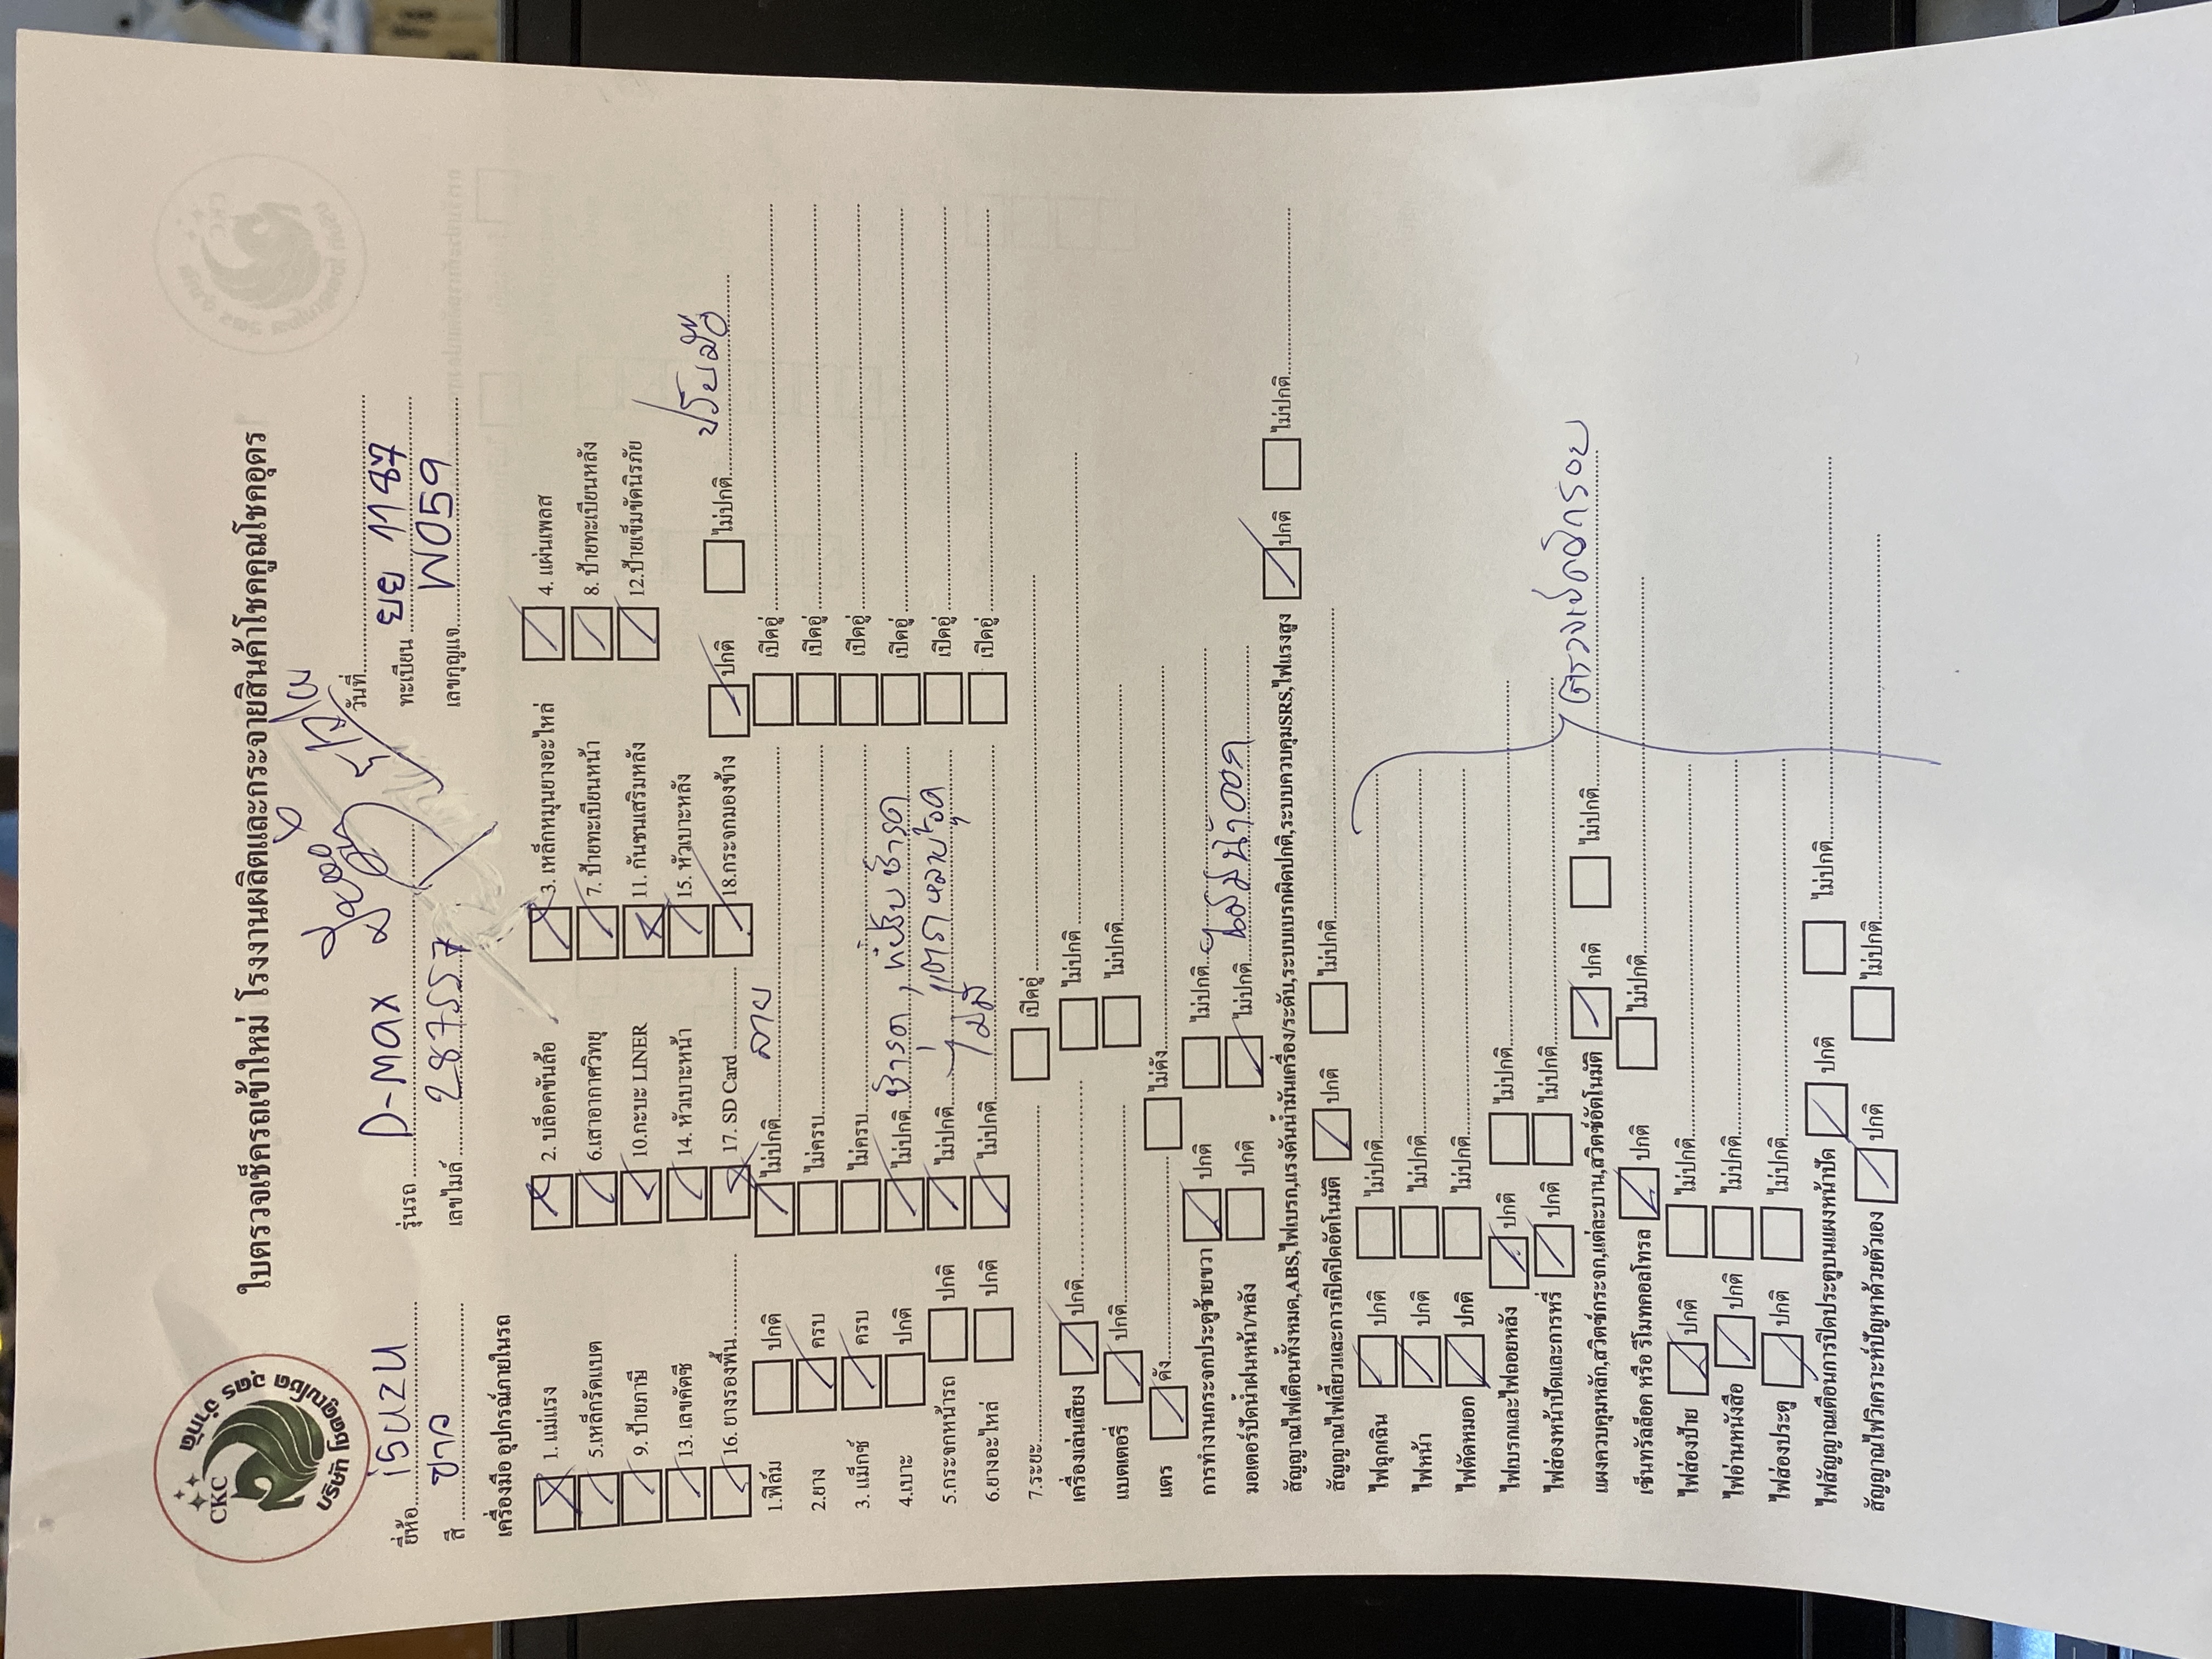 CKC
บริษัท โชคคูณโชค อุดร จำกัด
ใบตรวจเช็ครถเข้าใหม่ โรงงานผลิตและกระจายสินค้าโชคคูณโชคอุดร
วันที่
ยี่ห้อ ISUZU รุ่นรถ D-MAX ทะเบียน ยย 1187
สี ขาว เลขไมล์ 287557 เลขกุญแจ W059
เครื่องมือ อุปกรณ์ภายในรถ
1. แม่แรง 2. บล็อคขันล้อ 3. เหล็กหมุนยางอะไหล่ 4. แผ่นเพลส
5.เหล็กรัดแบต 6.เสาอากาศวิทยุ 7. ป้ายทะเบียนหน้า 8. ป้ายทะเบียนหลัง
9. ป้ายภาษี 10.กระบะ LINER 11. กันชนเสริมหลัง 12.ป้ายเข็มขัดนิรภัย
13. เลขคัตซี 14. หัวเบาะหน้า 15. หัวเบาะหลัง
16. ยางรองพื้น 17. SD Card 18.กระจกมองข้าง ปกติ ไม่ปกติ
1.ฟิล์ม ปกติ ไม่ปกติ ลาย เปิดอู่
2.ยาง ครบ ไม่ครบ เปิดอู่
3. แม็กซ์ ครบ ไม่ครบ เปิดอู่
4.เบาะ ปกติ ไม่ปกติ ชำรุด, ชำรุด เปิดอู่
5.กระจกหน้ารถ ปกติ ไม่ปกติ แตกหลายจุด เปิดอู่
6.ยางอะไหล่ ปกติ ไม่ปกติ ไม่มี เปิดอู่
7.ระยะ เปิดอู่
เครื่องเล่นเสียง ปกติ ไม่ปกติ
แบตเตอรี่ ปกติ ไม่ปกติ
แตร ดัง ไม่ดัง
การทำงานกระจกประตูซ้ายขวา ปกติ ไม่ปกติ
มอเตอร์ปัดน้ำฝนหน้า/หลัง ปกติ ไม่ปกติ ไม่มีน้ำออก
สัญญาณไฟเตือนทั้งหมด,ABS,ไฟเบรก,แรงดันน้ำมันเครื่อง/ระดับ,ระบบเบรกผิดปกติ,ระบบควบคุมSRS,ไฟแรงสูง ปกติ ไม่ปกติ
สัญญาณไฟเลี้ยวและการเปิดปิดอัตโนมัติ ปกติ ไม่ปกติ
ไฟฉุกเฉิน ปกติ ไม่ปกติ
ไฟหน้า ปกติ ไม่ปกติ
ไฟตัดหมอก ปกติ ไม่ปกติ
ไฟเบรกและไฟถอยหลัง ปกติ ไม่ปกติ
ไฟส่องหน้าปัดและการหรี่ ปกติ ไม่ปกติ
แผงควบคุมหลัก,สวิตซ์กระจก,แต่ละบาน,สวิตซ์อัตโนมัติ ปกติ ไม่ปกติ
เซ็นทรัลล็อค หรือ รีโมทคอลโทรล ปกติ ไม่ปกติ
ไฟส่องป้าย ปกติ ไม่ปกติ
ไฟอ่านหนังสือ ปกติ ไม่ปกติ
ไฟส่องประตู ปกติ ไม่ปกติ
ไฟสัญญาณเตือนการปิดประตูบนแผงหน้าปัด ปกติ ไม่ปกติ
สัญญาณไฟวิเคราะห์ปัญหาด้วยตัวเอง ปกติ ไม่ปกติ